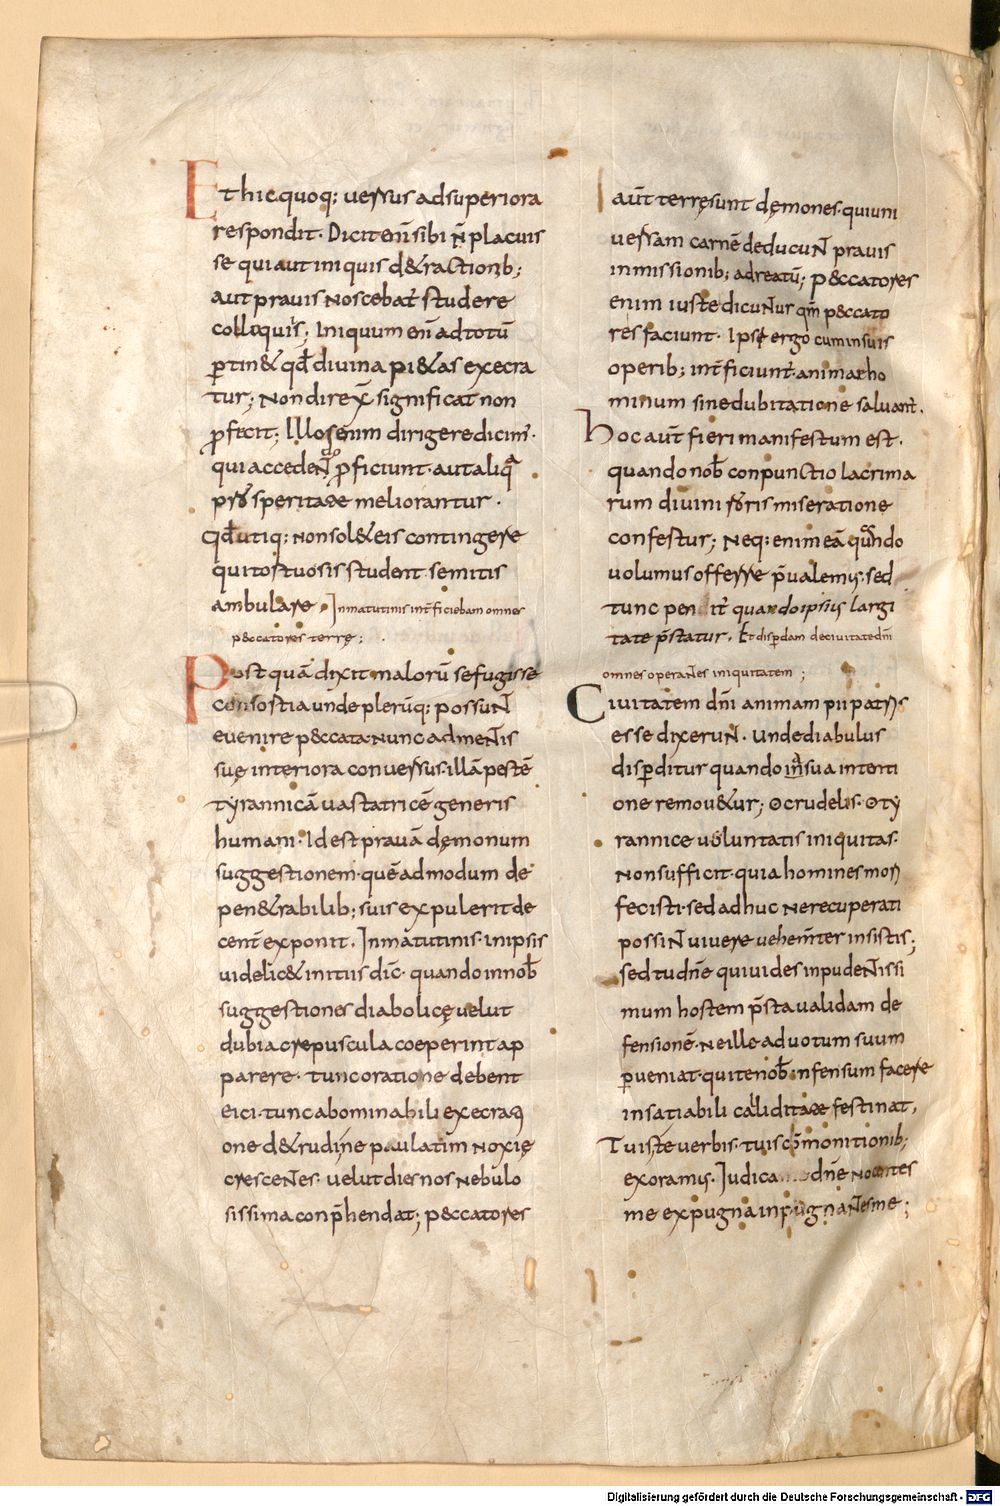 Et hic quoq; versus ad superiora
respondit. Dicit enī sibi n̄ placuis
se qui aut iniquis d&ractionib;
aut pravis noscebat̄ studere
colloquiis; Iniquum enī ad totū
p̱tin& qđ divina pi&as execra
tur; Non direx̄ significat non
p̱fecit; Illos enim dirigere dicim̄.
qui accedendo p̱ficiunt. aut aliqua
prosperitate meliorantur.
Qđ utiq; non sol& eis contingere
qui tortuosis student semitis
ambulare. In matutinis int̄ficiebam omnes
peccatores terrę;
Postquā dixit malorū se fugisse
consortia unde plerūq; possunt
evenire p&cata. nunc ad mentis
suę interiora conversus. illā pestē
tyrannicā vastatricē generis
humani. Id est pravā dęmonum
suggestionem. quē admodum de
pen&rabilib; suis expulerit de
cent̄ exponit. In matutinis. in ipsis
videlic& initiis dic̄. quando in nob̄
suggestiones diabolicę velut
dubia crepuscula coeperint ap
parere. tunc oratione debent
eici. tunc abominabili execrati
one d&rudi. ne paulatim noxię
crescentes. velut dies nos nebulo
sissima conp̄hendat; p&ccatores
aut̄ terrę sunt dęmones. qui uni
versam carnē deducunt pravis
inmissionib; ad reatū; p&ccatores
enim iuste dicuntur qm̄ p&ccato
res faciunt. Ipsi ergo cum in suis
operib; int̄ficiunt̄. animae ho
minum sine dubitatione salvant̄.
hoc aut̄ fieri manifestum est.
quando nob̄ conpunctio lacrima
rum divini roris miseratione
confertur; Neq; enim eā quando
volumus offerre p̄valemus. sed
tunc pendit̄ quando ipsius largi
tate p̄statur. Et disp̱dam de civitate dn̄i
omnes operantes iniquitatem;
Civitatem dn̄i animam pii patres
esse dixerunt. Unde diabulus
disp̱ditur quando in sua intenti
one remov&ur; O crudelis. O ty
rannice voluntatis iniquitas.
Non sufficit quia homines mori
fecisti. sed adhuc ne recuperati
possint vivere vehement̄er insistis;
sed tu dn̄e qui vides inpudentissi
mum hostem p̄sta validam de
fensionē. Ne ille ad votum suum
p̱veniat. qui te nob̄ infensum facere
insatiabili caliditate festinat,
Tuis te verbis. tuis cōmonitionib;
exoramus. Iudica dn̄e nocentes
me expugna inpugnantes me;
Digitalisierung gefördert durch die Deutsche Forschungsgemeinschaft - DFG